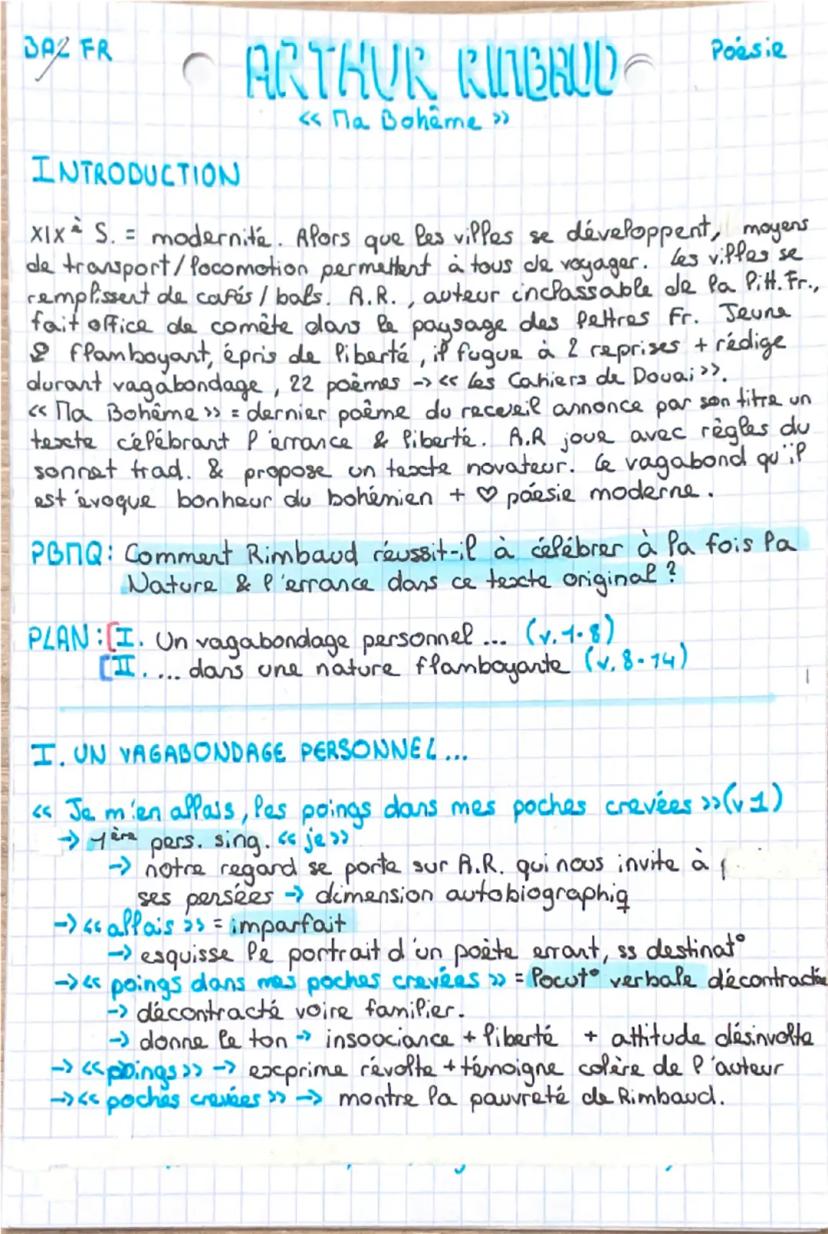 BAC FR
Poésie
ARTHUR RIMBAUD
<< Ma Bohême >>
INTRODUCTION
XIXè S. = modernité. Alors que les villes se développent, moyens
de transport/locomotion permettent à tous de voyager. Les villes se
remplissent de cafés / bals. A.R., auteur inclassable de la litt. Fr.,
fait office de comète dans le paysage des lettres Fr. Jeune
& flamboyant, épris de liberté, il fugue à 2 reprises + rédige
durant vagabondage, 22 poèmes -> << Les Cahiers de Douai >>.
<< Ma Bohême >> = dernier poème du recueil annonce par son titre un
texte célébrant l'errance & liberté. A.R joue avec règles du
sonnet trad. & propose un texte novateur. Ce vagabond qu'il
est évoque bonheur du bohémien + ♡ poésie moderne.
PBMQ: Comment Rimbaud réussit-il à célébrer à la fois la
Nature & l'errance dans ce texte original ?
PLAN : [I. Un vagabondage personnel ... (v.1-8)
[II. ... dans une nature flamboyante (v. 8-14)
I. UN VAGABONDAGE PERSONNEL ...
<< Je m'en allais, les poings dans mes poches crevées >> (v 1)
-> 1ère pers. sing. << je >>
-> notre regard se porte sur A.R. qui nous invite à
ses pensées -> dimension autobiographiq
-> << allais >> = imparfait
-> esquisse le portrait d'un poète errant, ss destinat°
-> << poings dans mes poches crevées >> = locut° verbale décontractée
-> décontracté voire familier.
-> donne le ton -> insoociance + liberté + attitude désinvolte
-> << poings >> -> exprime révolte + témoigne colère de l'auteur
-> << poches crevées >> -> montre la pauvreté de Rimbaud.